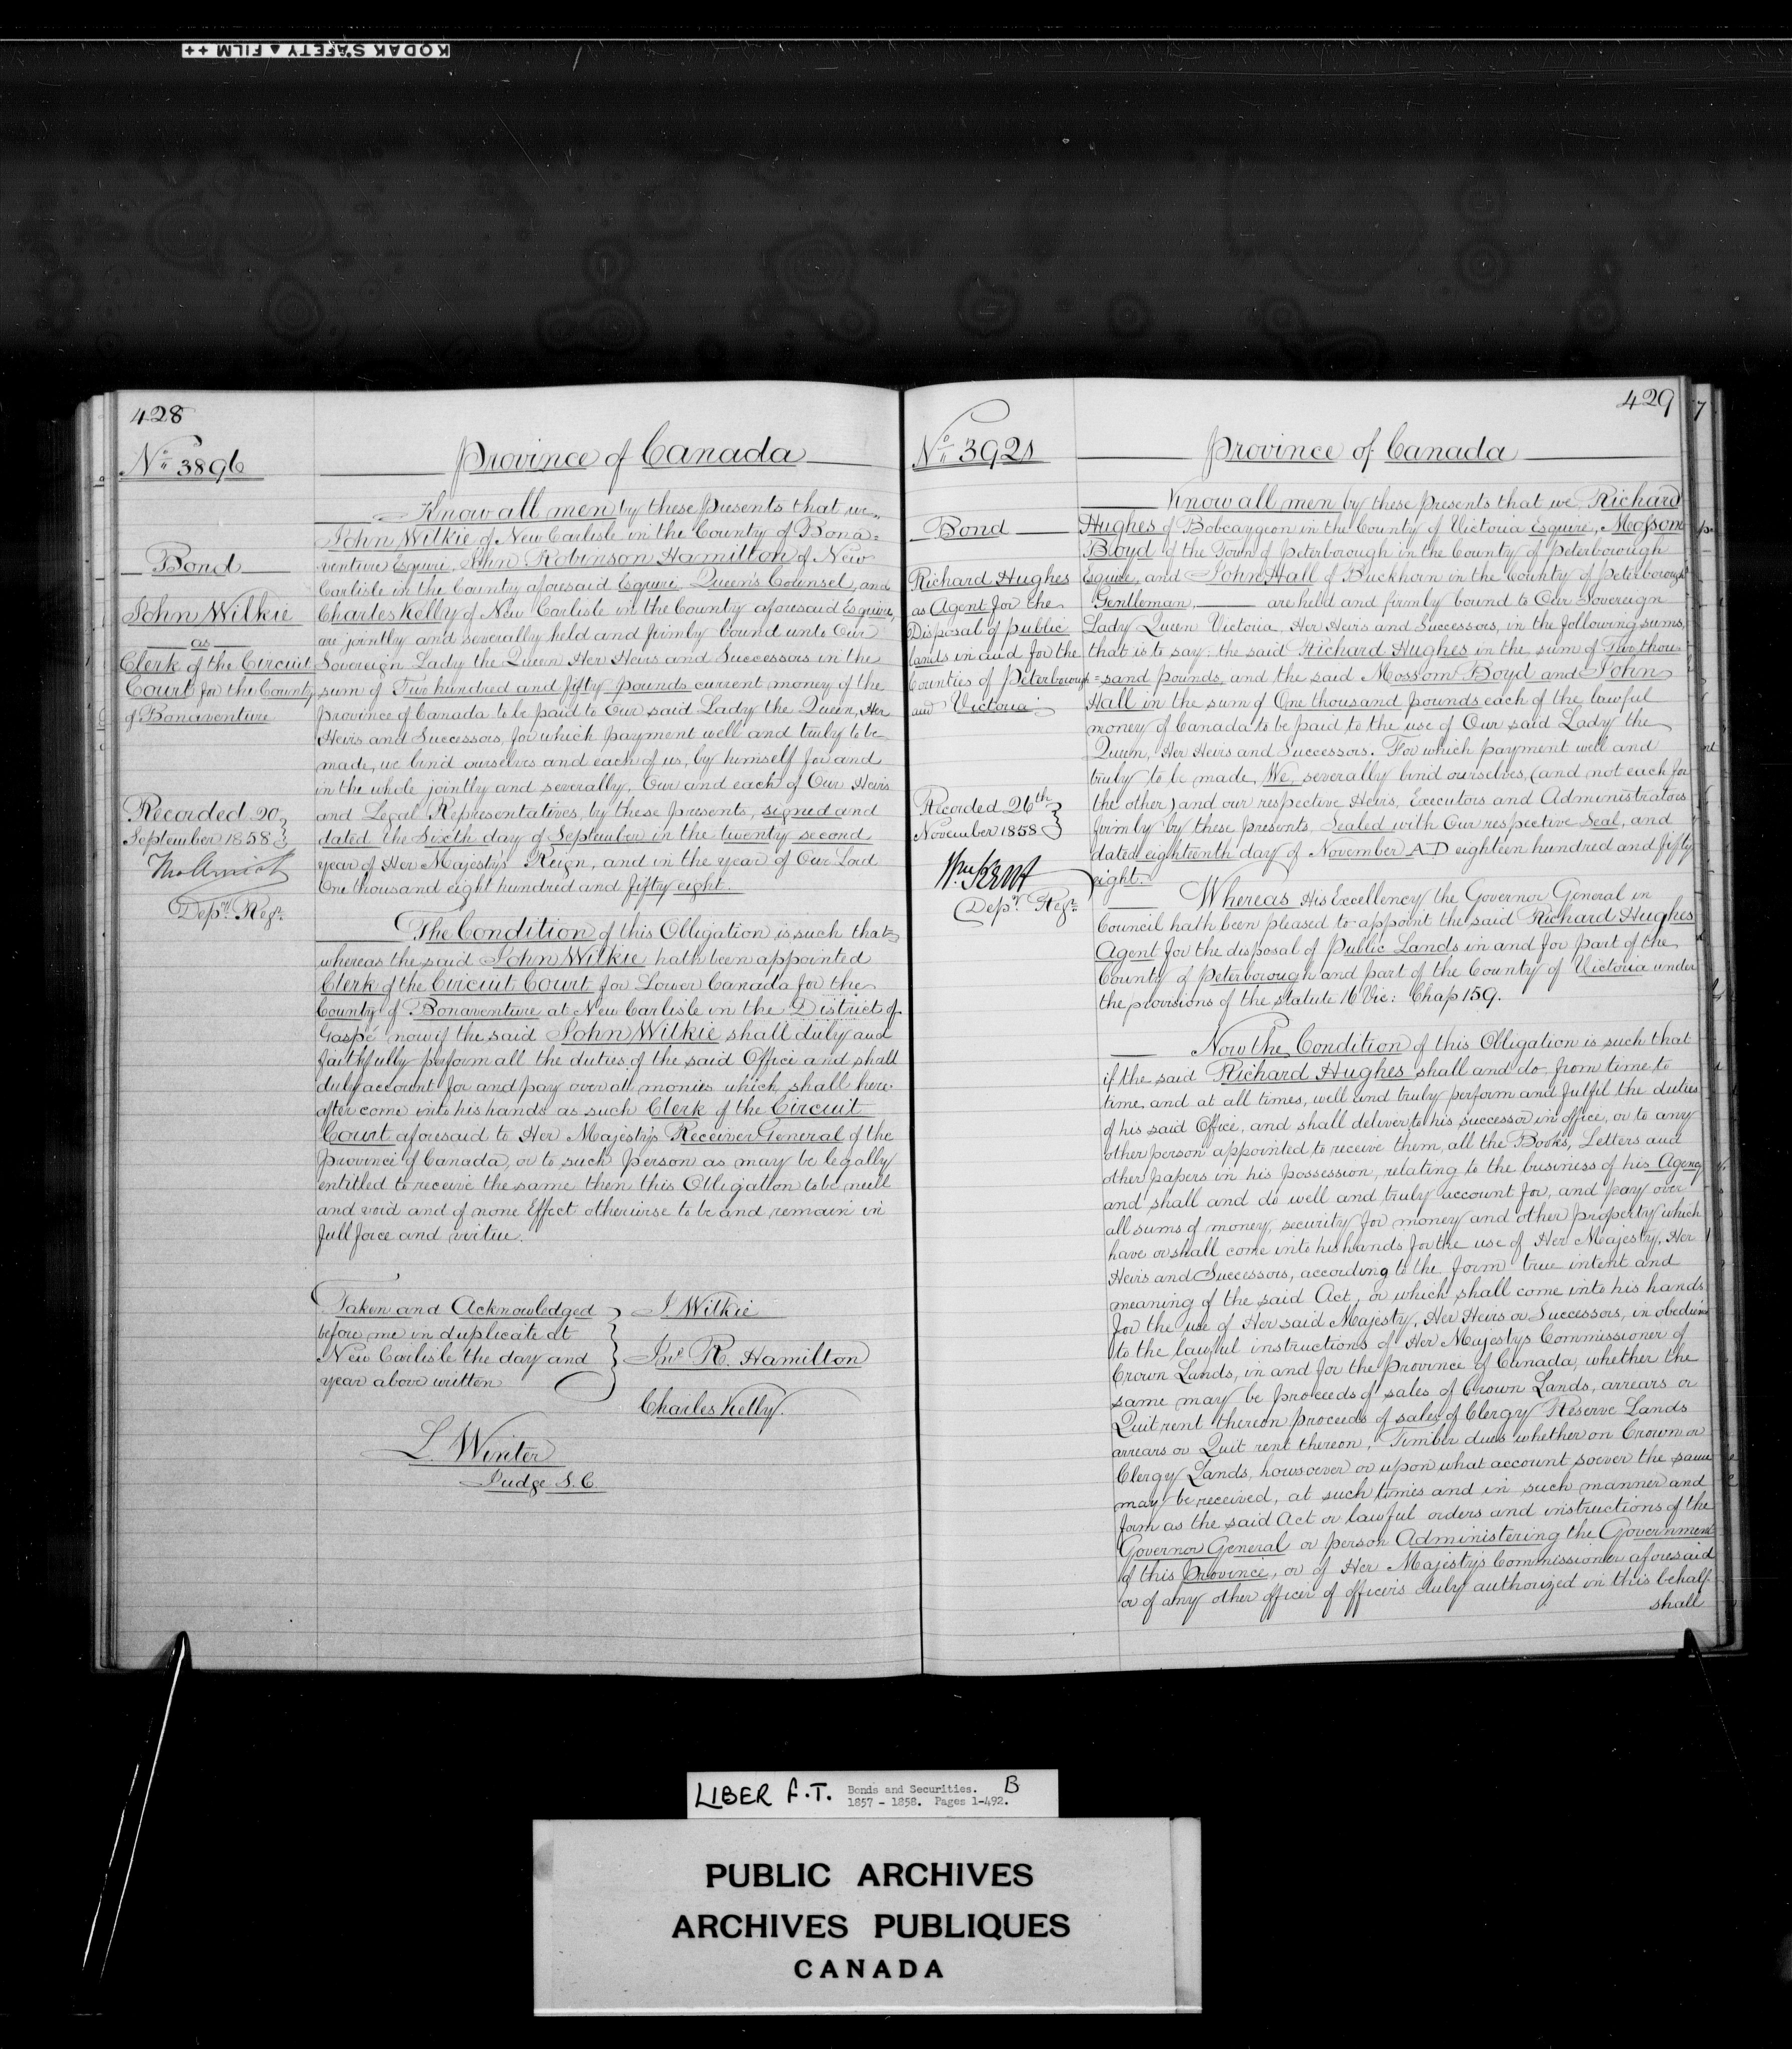 KODAK SAFETY ▲ FILM ++
428
No. 3896
Bond
John Wilkie
as
Clerk of the Circuit
Court for the County
of Bonaventure
Recorded 20
September 1858
Depy. Regr.
Province of Canada
Know all men by these Presents that we
John Wilkie of New Carlisle in the County of Bona=
venture Esquire, John Robinson Hamilton of New
Carlisle in the County aforesaid Esquire Queen's Counsel, and
Charles Kelly of New Carlisle in the County aforesaid Esquire,
are jointly and severally held and firmly bound unto Our
Sovereign Lady the Queen Her Heirs and Successors in the
sum of Two hundred and fifty pounds current money of the
Province of Canada to be paid to Our said Lady the Queen, Her
Heirs and Successors, for which payment well and truly to be
made, we bind ourselves and each of us, by himself for and
in the whole jointly and severally, Our and each of Our Heirs
and Legal Representatives, by these presents, signed and
dated the Sixth day of September in the twenty second
year of Her Majesty's Reign, and in the year of Our Lord
One thousand eight hundred and fifty eight.
The Condition of this Obligation is such that
whereas the said John Wilkie hath been appointed
Clerk of the Circuit Court for Lower Canada for the
County of Bonaventure at New Carlisle in the District of
Gaspé now if the said John Wilkie shall duly and
faithfully perform all the duties of the said Office and shall
duly account for and pay over all monies which shall here
after come into his hands as such Clerk of the Circuit
Court aforesaid to Her Majesty's Receiver General of the
Province of Canada, or to such person as may be legally
entitled to receive the same then this Obligation to be null
and void and of none Effect otherwise to be and remain in
full force and virtue.
Taken and Acknowledged
before me in duplicate at
New Carlisle the day and
year above written
J Wilkie
Jno R. Hamilton
Charles Kelly.
L. Winter
Judge S. C.
429
No. 3921
Bond
Richard Hughes
as Agent for the
Disposal of public
lands in and for the
Counties of Peterborough
and Victoria
Recorded 26th
November 1858
Depy. Regr.
Province of Canada
Know all men by these presents that we Richard
Hughes of Bobcaygeon in the County of Victoria Esquire, Mossom
Boyd of the Town of Peterborough in the County of Peterborough
Esquire, and John Hall of Buckhorn in the County of Peterborough
Gentleman, are held and firmly bound to Our Sovereign
Lady Queen Victoria Her Heirs and Successors, in the following sums,
that is to say: the said Richard Hughes in the sum of Two thou
=sand pounds, and the said Mossom Boyd and John
Hall in the sum of One thousand pounds each of the lawful
money of Canada to be paid to the use of Our said Lady the
Queen, Her Heirs and Successors. For which payment well and
truly to be made, We, severally bind ourselves, (and not each for
the other) and our respective Heirs, Executors and Administrators
firmly by these presents, Sealed with Our respective Seal, and
dated eighteenth day of November AD eighteen hundred and fifty
eight.
Whereas His Excellency the Governor General in
Council hath been pleased to appoint the said Richard Hughes
Agent for the disposal of Public Lands in and for part of the
County of Peterborough and part of the County of Victoria under
the provisions of the statute 16 Vic: Chap 159.
Now the Condition of this Obligation is such that
if the said Richard Hughes shall and do from time to
time and at all times, well and truly perform and fulfil the duties
of his said Office, and shall deliver to his successor in office, or to any
other person appointed to receive them, all the Books, Letters and
other papers in his possession, relating to the business of his Agency
and shall and do well and truly account for, and pay over
all sums of money, security for money and other property which
have or shall come into his hands for the use of Her Majesty, Her
Heirs and Successors, according to the form true intent and
meaning of the said Act, or which shall come into his hands
for the use of Her said Majesty, Her Heirs or Successors, in obedience
to the lawful instructions of Her Majestys Commissioner of
Crown Lands, in and for the Province of Canada, whether the
same may be proceeds of sales of Crown Lands, arrears or
Quit rent thereon proceeds of sales of Clergy Reserve Lands
arrears or Quit rent thereon, Timber dues whether on Crown or
Clergy Lands, howsoever or upon what account soever the same
may be received, at such times and in such manner and
form as the said Act or lawful orders and instructions of the
Governor General or person Administering the Government
of this Province, or of Her Majesty's Commissioner aforesaid
or of any other officer of officers duly authorized in this behalf
shall
LIBER F.T. Bonds and Securities. B
1857 - 1858. Pages 1-492.
PUBLIC ARCHIVES
ARCHIVES PUBLIQUES
CANADA